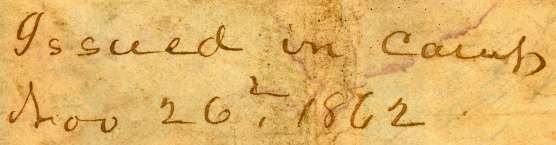 Issued in camp
Nov 26, 1862